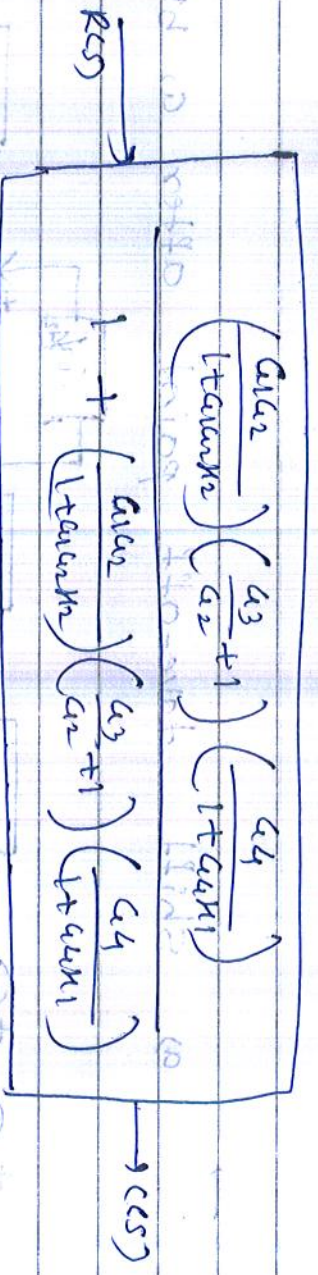 R(s) → (G1G2 / 1+G1G2H2) (G3/G2 + 1) (G4 / 1+G4H1)
1 + (G1G2 / 1+G1G2H2) (G3/G2 + 1) (G4 / 1+G4H1) → C(s)